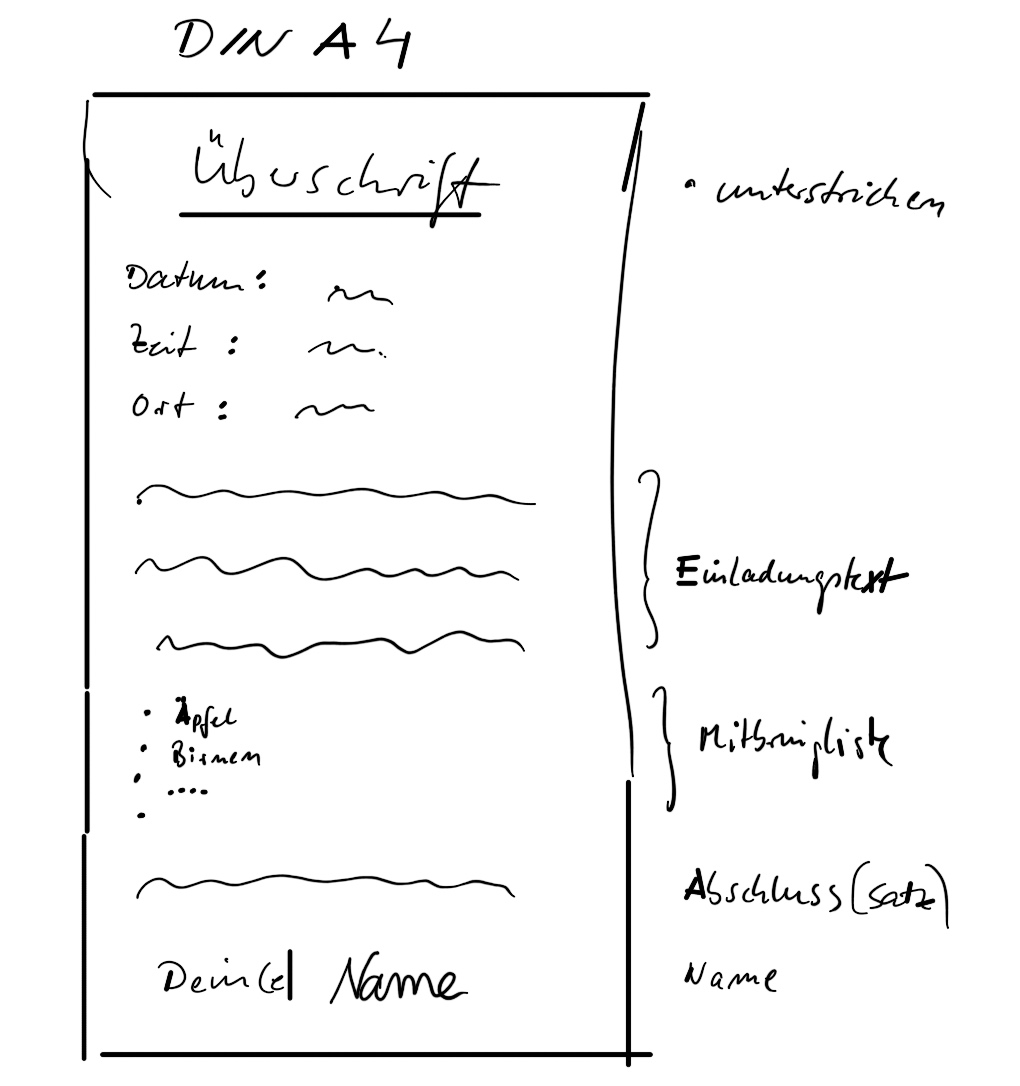 DIN A4
Überschrift
• unterstrichen
Datum:
Zeit :
Ort :
Einladungstext
• Äpfel
• Birnen
• ....
•
Mitbringliste
Abschluss(satz)
Dein(e) Name
Name